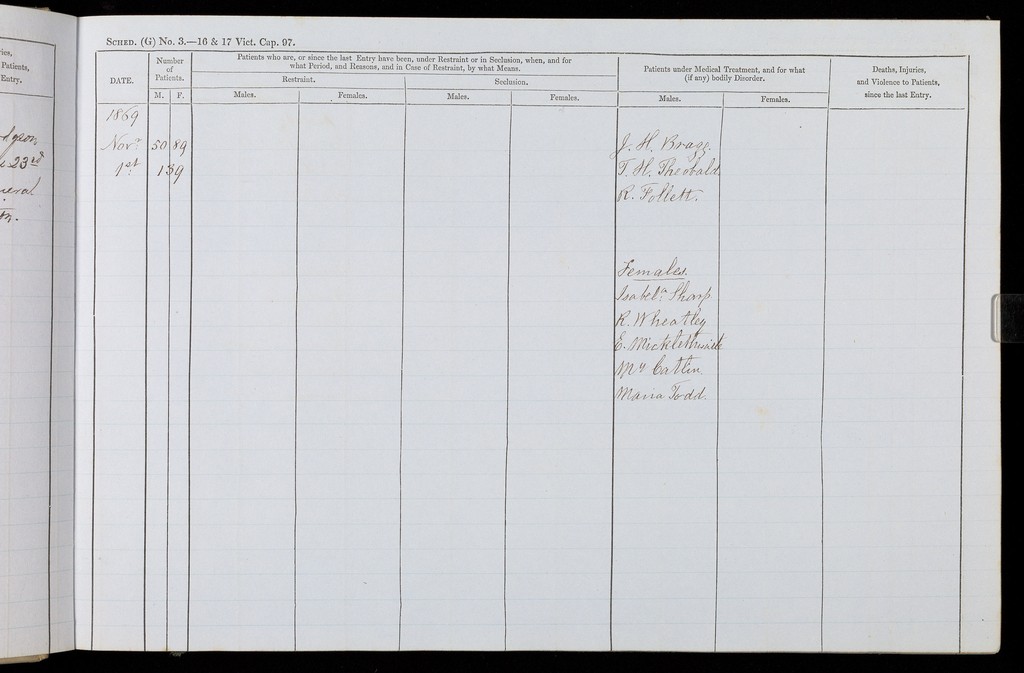 ries,
Patients,
Entry.
23rd
SCHED. (G) No. 3.—16 & 17 Vict. Cap. 97.
DATE.
Number
of
Patients.
M. F.
Patients who are, or since the last Entry have been, under Restraint or in Seclusion, when, and for
what Period, and Reasons, and in Case of Restraint, by what Means.
Restraint.
Seclusion.
Males.
Females.
Males.
Females.
Patients under Medical Treatment, and for what
(if any) bodily Disorder.
Males.
Females.
Deaths, Injuries,
and Violence to Patients,
since the last Entry.
1869
Novr 50 89 J. H. Bragg.
1st 139 T. H. Theobald.
R. Follett.
Females.
Isabela Sharp
R. Wheatley
E. Micklethwaite
Mrs Catlin.
Maria Todd.